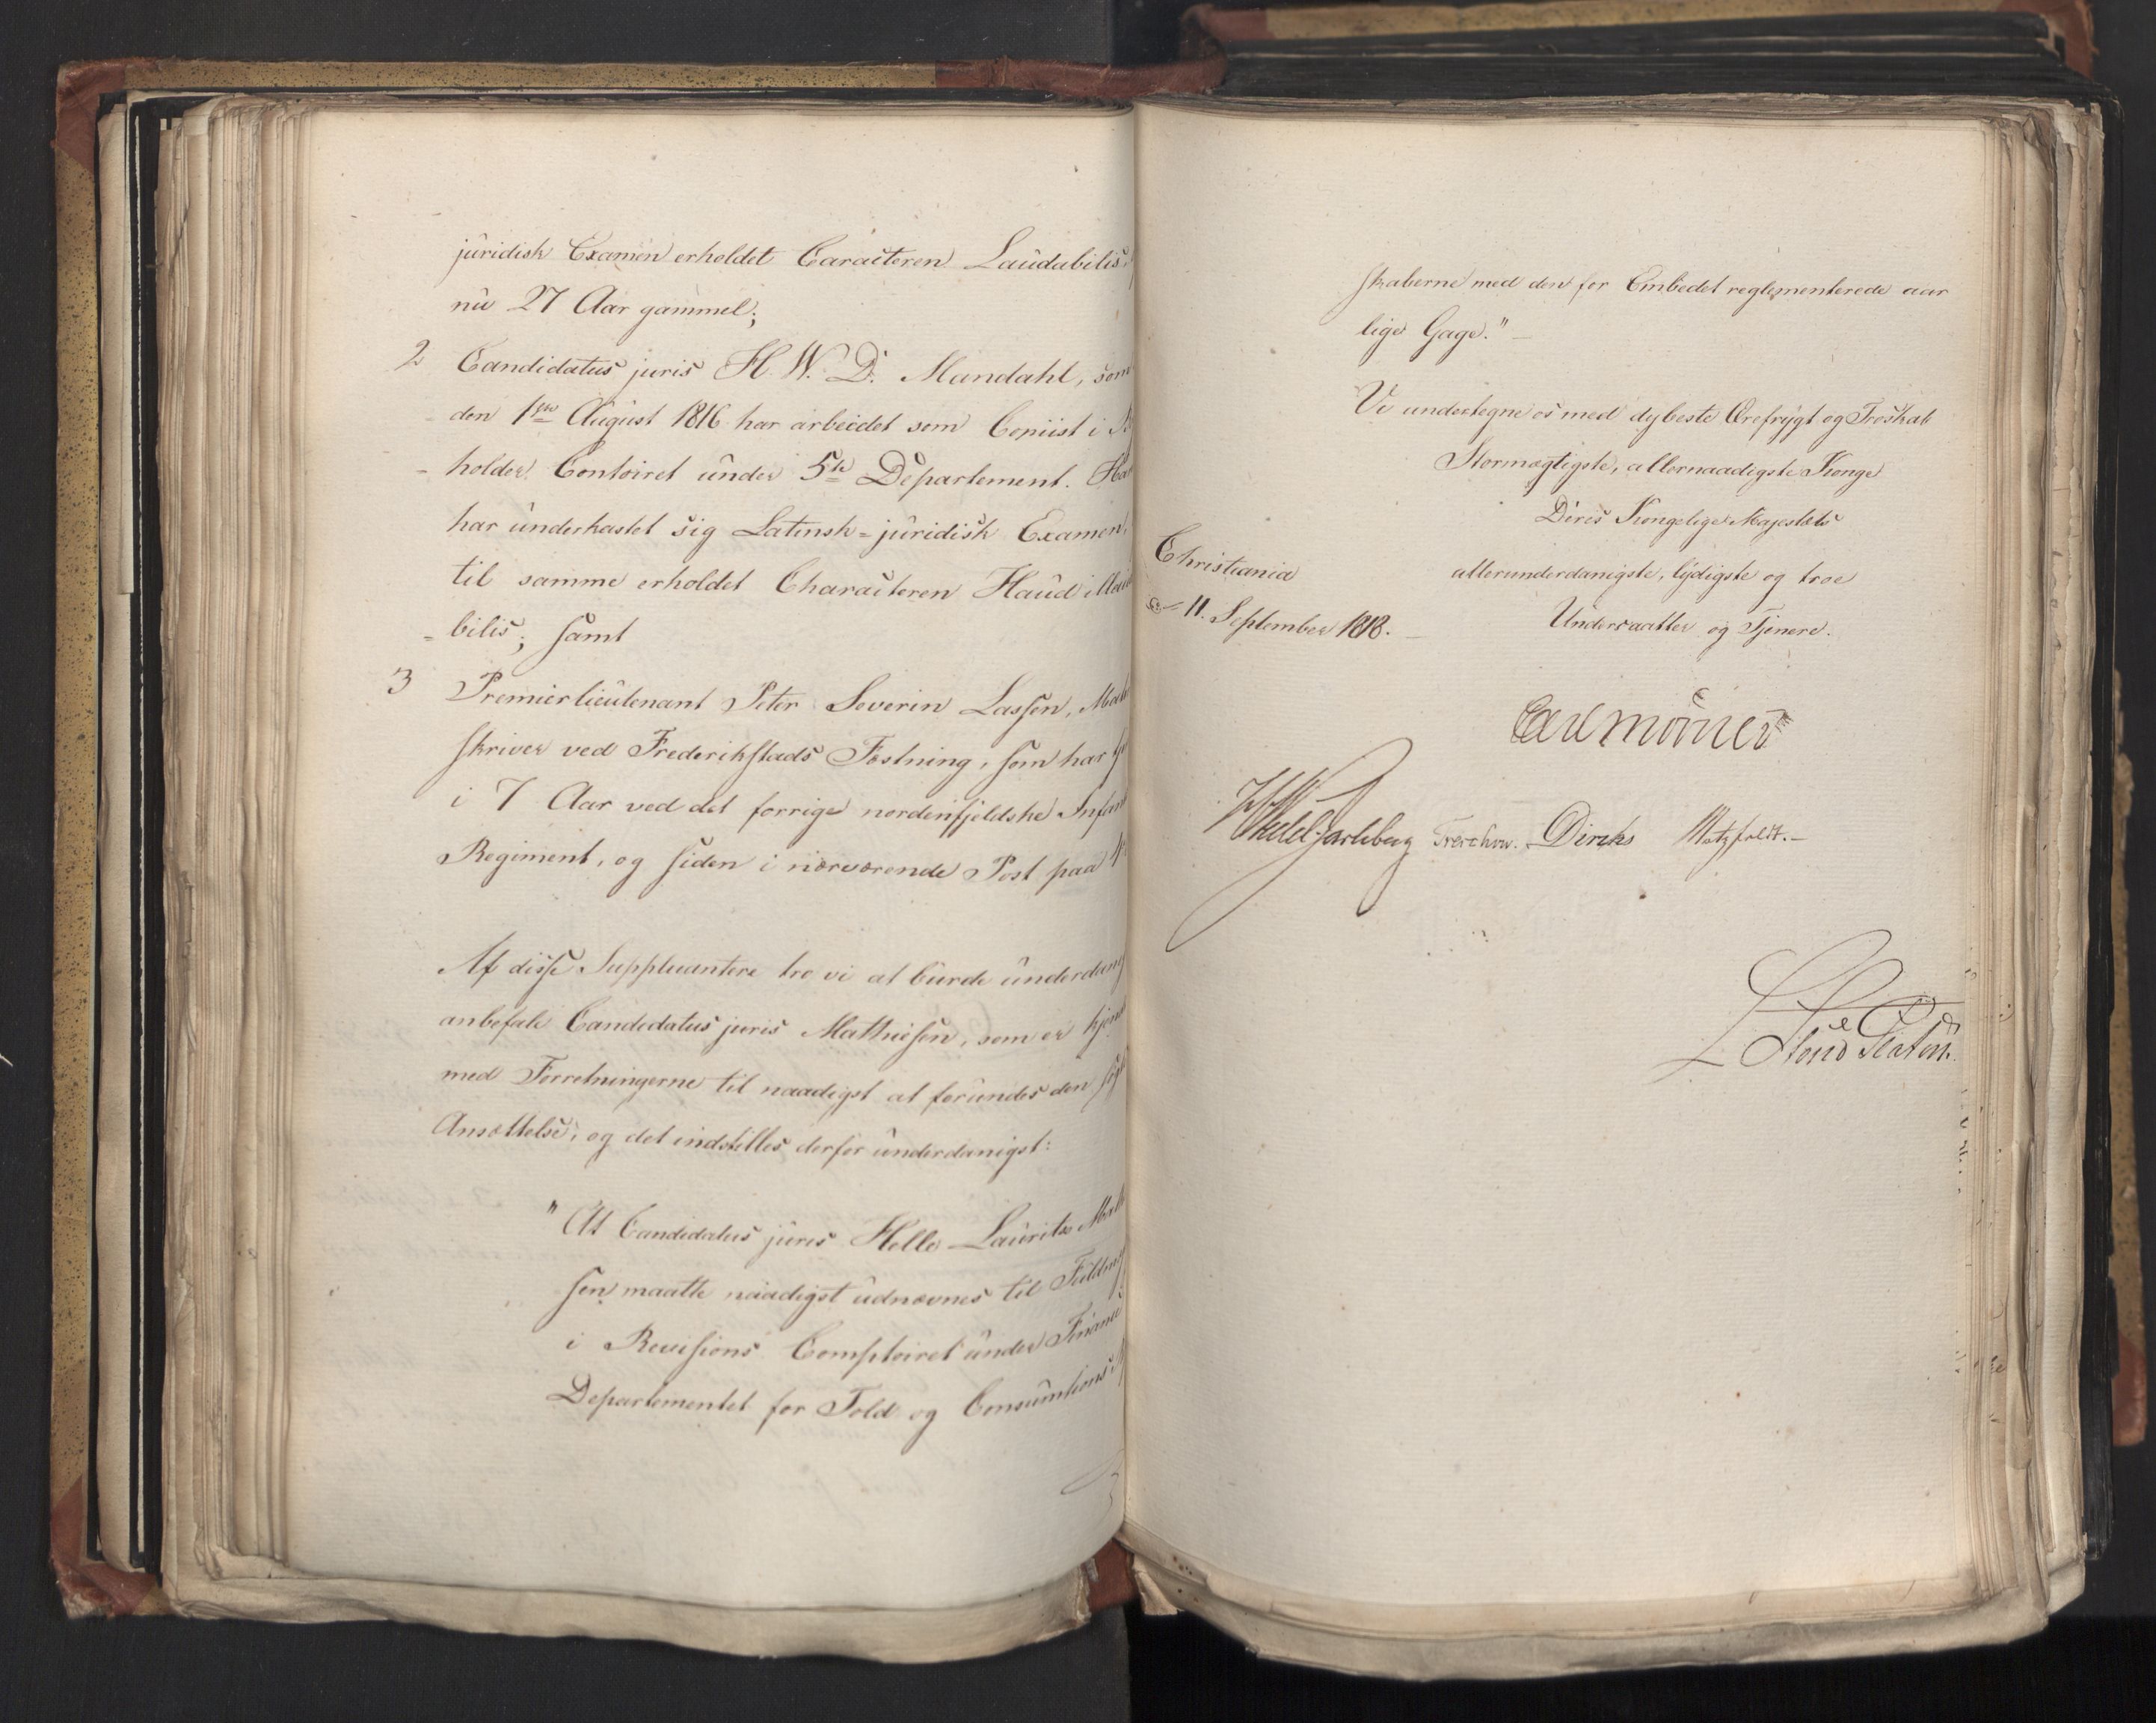 juridisk Examen erholdet Caracteren Laudabilis,
nu 27 Aar gammel;
2 Candidatus juris H. W. D. Mandahl, som
den 1ste August 1816 har arbeidet som Copiist i
holder Contoiret under 5te Departement. Han
har underkastet sig Latinsk=juridisk Examen,
til samme erholdet Characteren Haud illauda
=bilis; samt
3 Premierlieutenant Peter Severin Lassen,
skriver ved Frederikstads Fæstning, som har
i 7 Aar ved det forrige nordenfjeldske Infant
Regiment, og siden i nærværende Post paa
Af disse Supplicantere tro vi at burde underdanig
anbefale Candidatus juris Mathiesen, som er kjendt
med Forretningerne til naadigst at forundes den søgte
Ansættelse, og det indstilles derfor underdanigst:
"At Candidatus juris Helle Lauritz Math
sen maatte naadigst udnævnes til Fuldmæg
i Revisions Comptoiret under Finance
Departementet for Told og Consumtions
skaberne med den for Embedet reglementerede aar
lige Gage."
Vi undertegne os med dybeste Ærefrygt og Troskab
Stormægtigste, allernaadigste Konge
Deres Kongelige Majestæts
Christiania allerunderdanigste, lydigste og troe
11. September 1818. Undersaatter og Tjenere.
Carl Mörner
Wedel Jarlsberg Treschow. Diriks Motzfeldt.